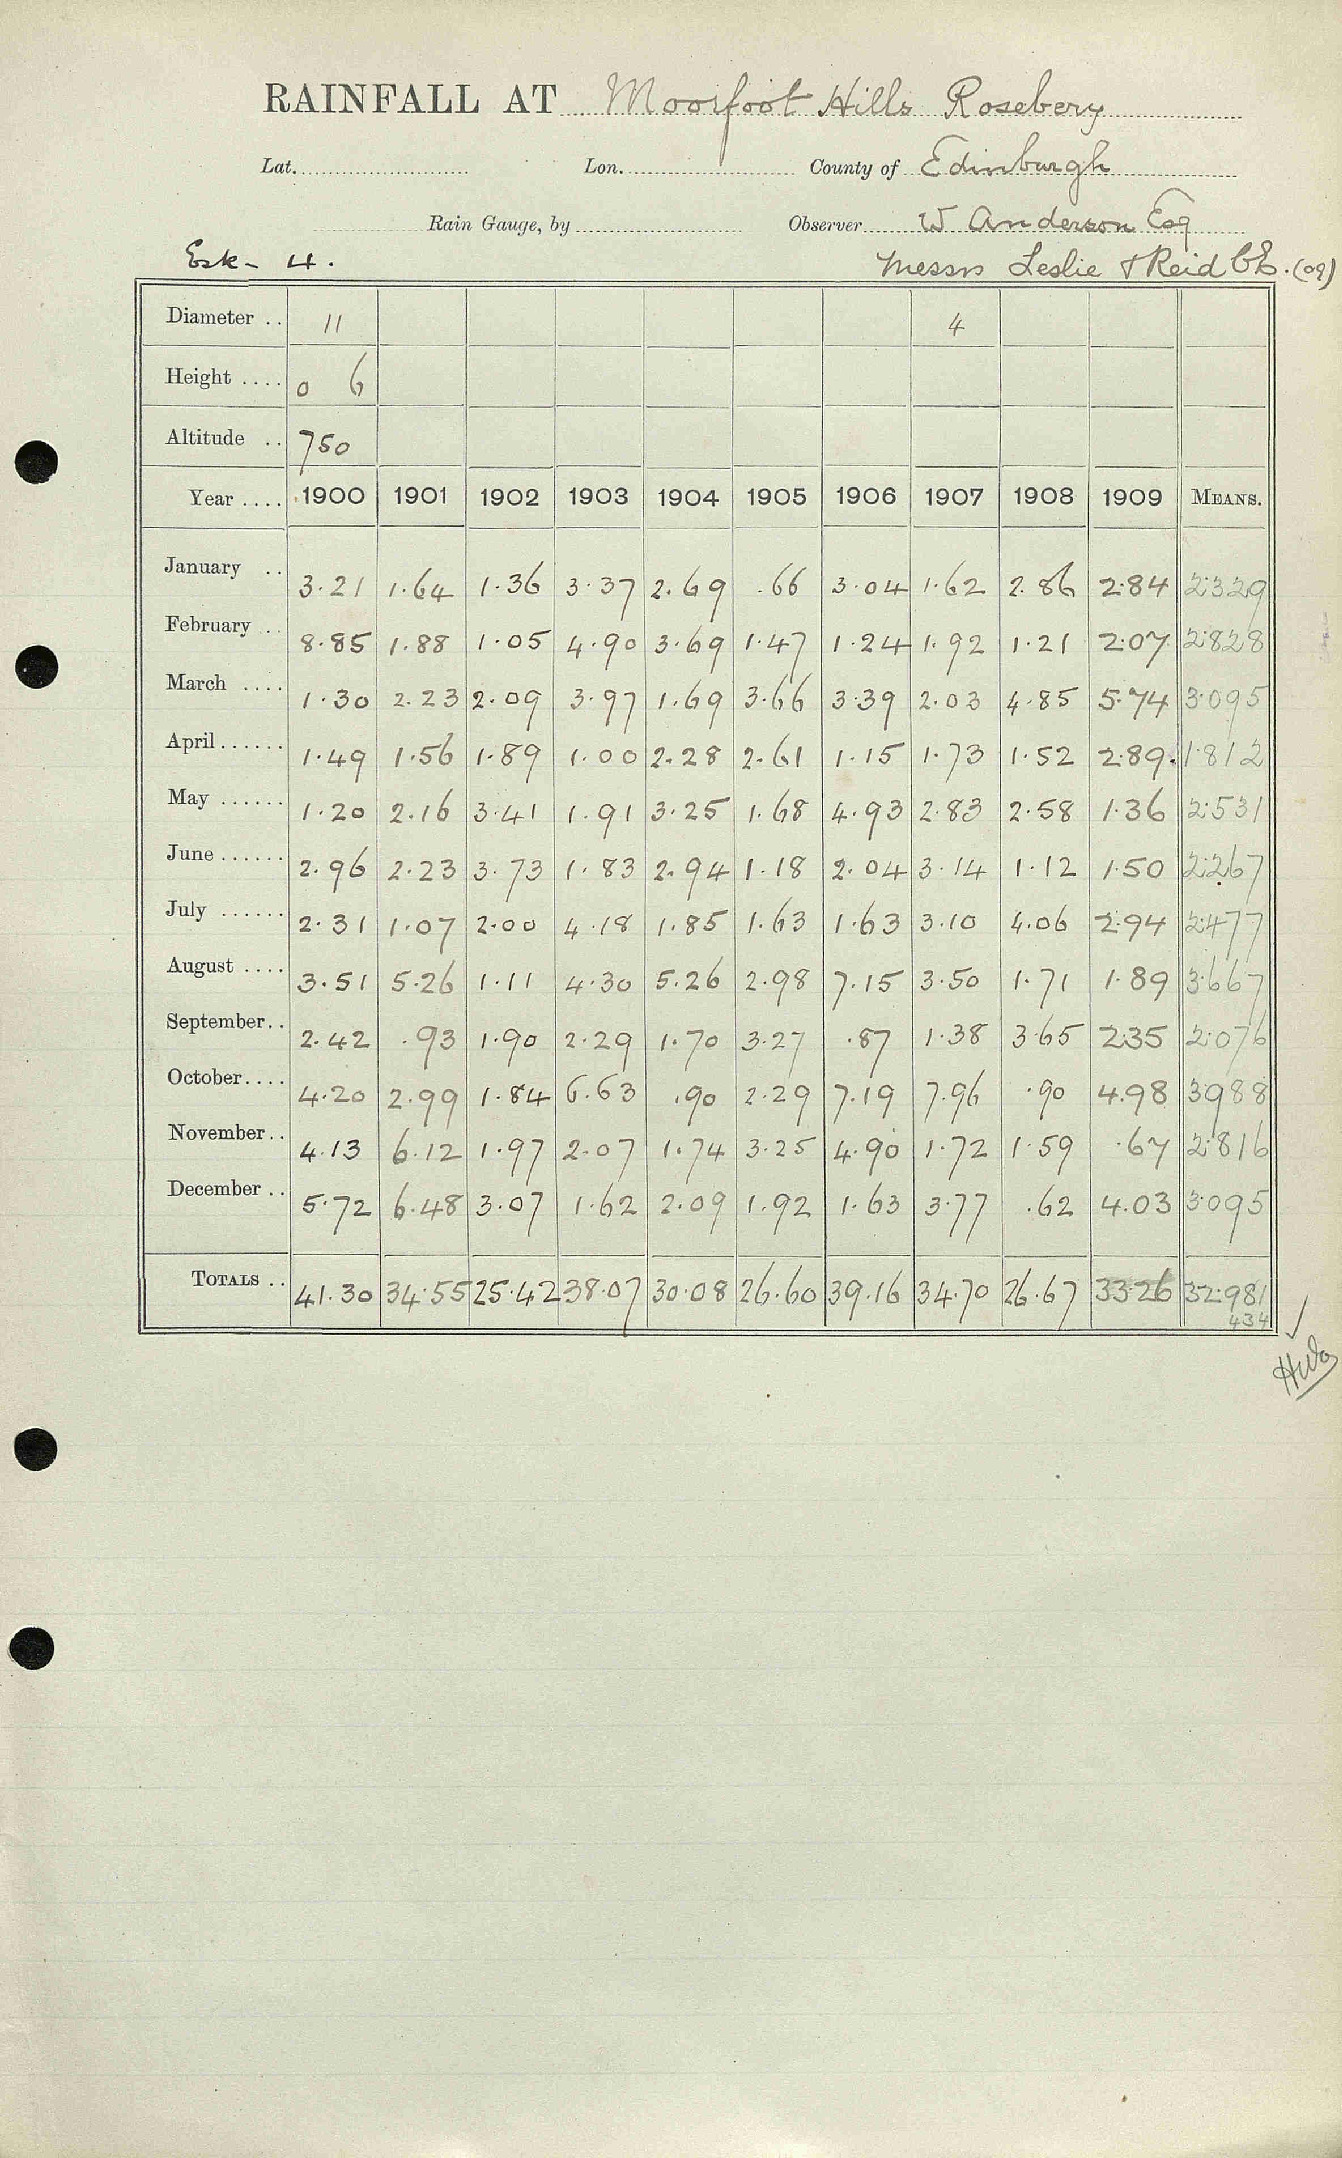 RAINFALL AT Moorfoot Hills Rosebery
Lat. Lon. County of Edinburgh
Rain Gauge, by Observer W Anderson Esq
Esk - 4. Messrs Leslie & Reid CE. (09)
Diameter .. 11 4
Height .... 0 6
Altitude .. 750
Year .... 1900 1901 1902 1903 1904 1905 1906 1907 1908 1909 MEANS.
January .. 3.21 1.64 1.36 3.37 2.69 .66 3.04 1.62 2.86 2.84 2.329
February .. 8.85 1.88 1.05 4.90 3.69 1.47 1.24 1.92 1.21 2.07 2.828
March .... 1.30 2.23 2.09 3.97 1.69 3.66 3.39 2.03 4.85 5.74 3.095
April...... 1.49 1.56 1.89 1.00 2.28 2.61 1.15 1.73 1.52 2.89 1.812
May ...... 1.20 2.16 3.41 1.91 3.25 1.68 4.93 2.83 2.58 1.36 2.531
June...... 2.96 2.23 3.73 1.83 2.94 1.18 2.04 3.14 1.12 1.50 2.267
July ...... 2.31 1.07 2.00 4.18 1.85 1.63 1.63 3.10 4.06 2.94 2.477
August .... 3.51 5.26 1.11 4.30 5.26 2.98 7.15 3.50 1.71 1.89 3.667
September.. 2.42 .93 1.90 2.29 1.70 3.27 .87 1.38 3.65 2.35 2.076
October.... 4.20 2.99 1.84 6.63 .90 2.29 7.19 7.96 .90 4.98 3.988
November.. 4.13 6.12 1.97 2.07 1.74 3.25 4.90 1.72 1.59 .67 2.816
December .. 5.72 6.48 3.07 1.62 2.09 1.92 1.63 3.77 .62 4.03 3.095
TOTALS .. 41.30 34.55 25.42 38.07 30.08 26.60 39.16 34.70 26.67 33.26 32.981
434